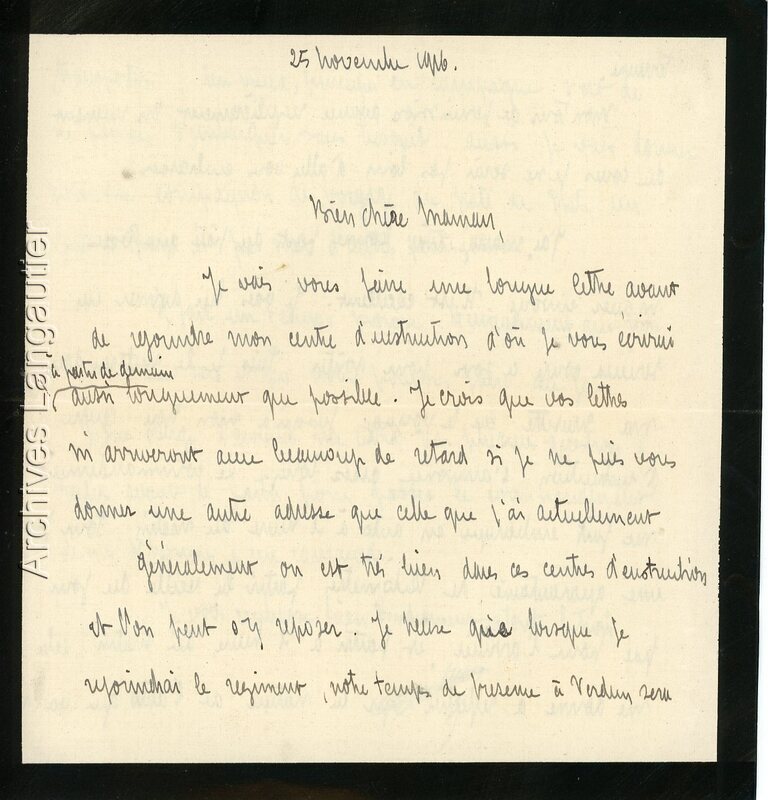 25 novembre 1916.
Bien chère Maman,
Je vais vous faire une longue lettre avant
de rejoindre mon centre d'instruction d'où je vous écrirai
à partir de demain
aussi longuement que possible. Je crois que vos lettres
m'arriveront avec beaucoup de retard si je ne puis vous
donner une autre adresse que celle que j'ai actuellement
Généralement on est très bien dans ces centres d'instruction
et l'on peut s'y reposer. Je pense que lorsque je
rejoindrai le regiment notre temps de presence à Verdun sera
Archives Langautier